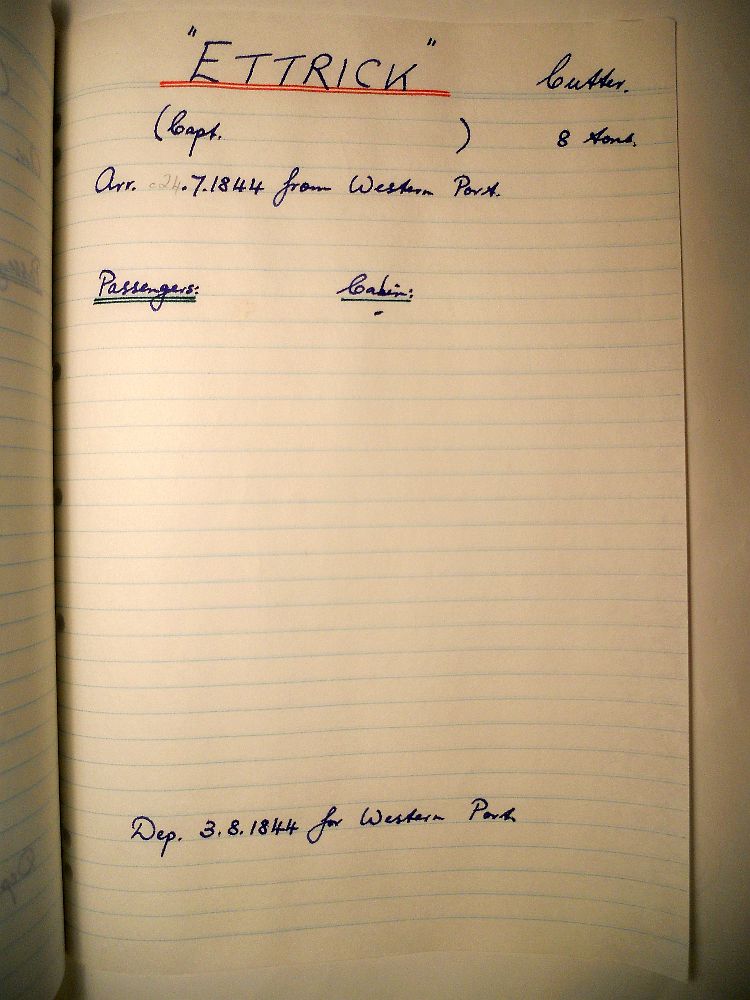 "ETTRICK" Cutter.
(Capt. ) 8 tons.
Arr. 24.7.1844 from Western Port.
Passengers: Cabin:
-
Dep. 3.8.1844 for Western Port